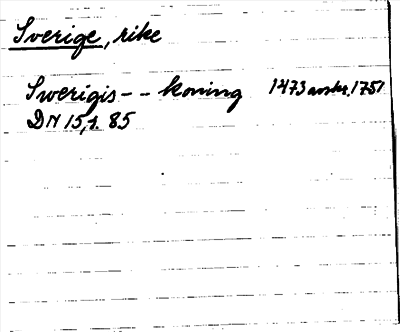 Sverige, rike
Swerigis - - koning 1473 avskr. 1751
DN 15, s. 85